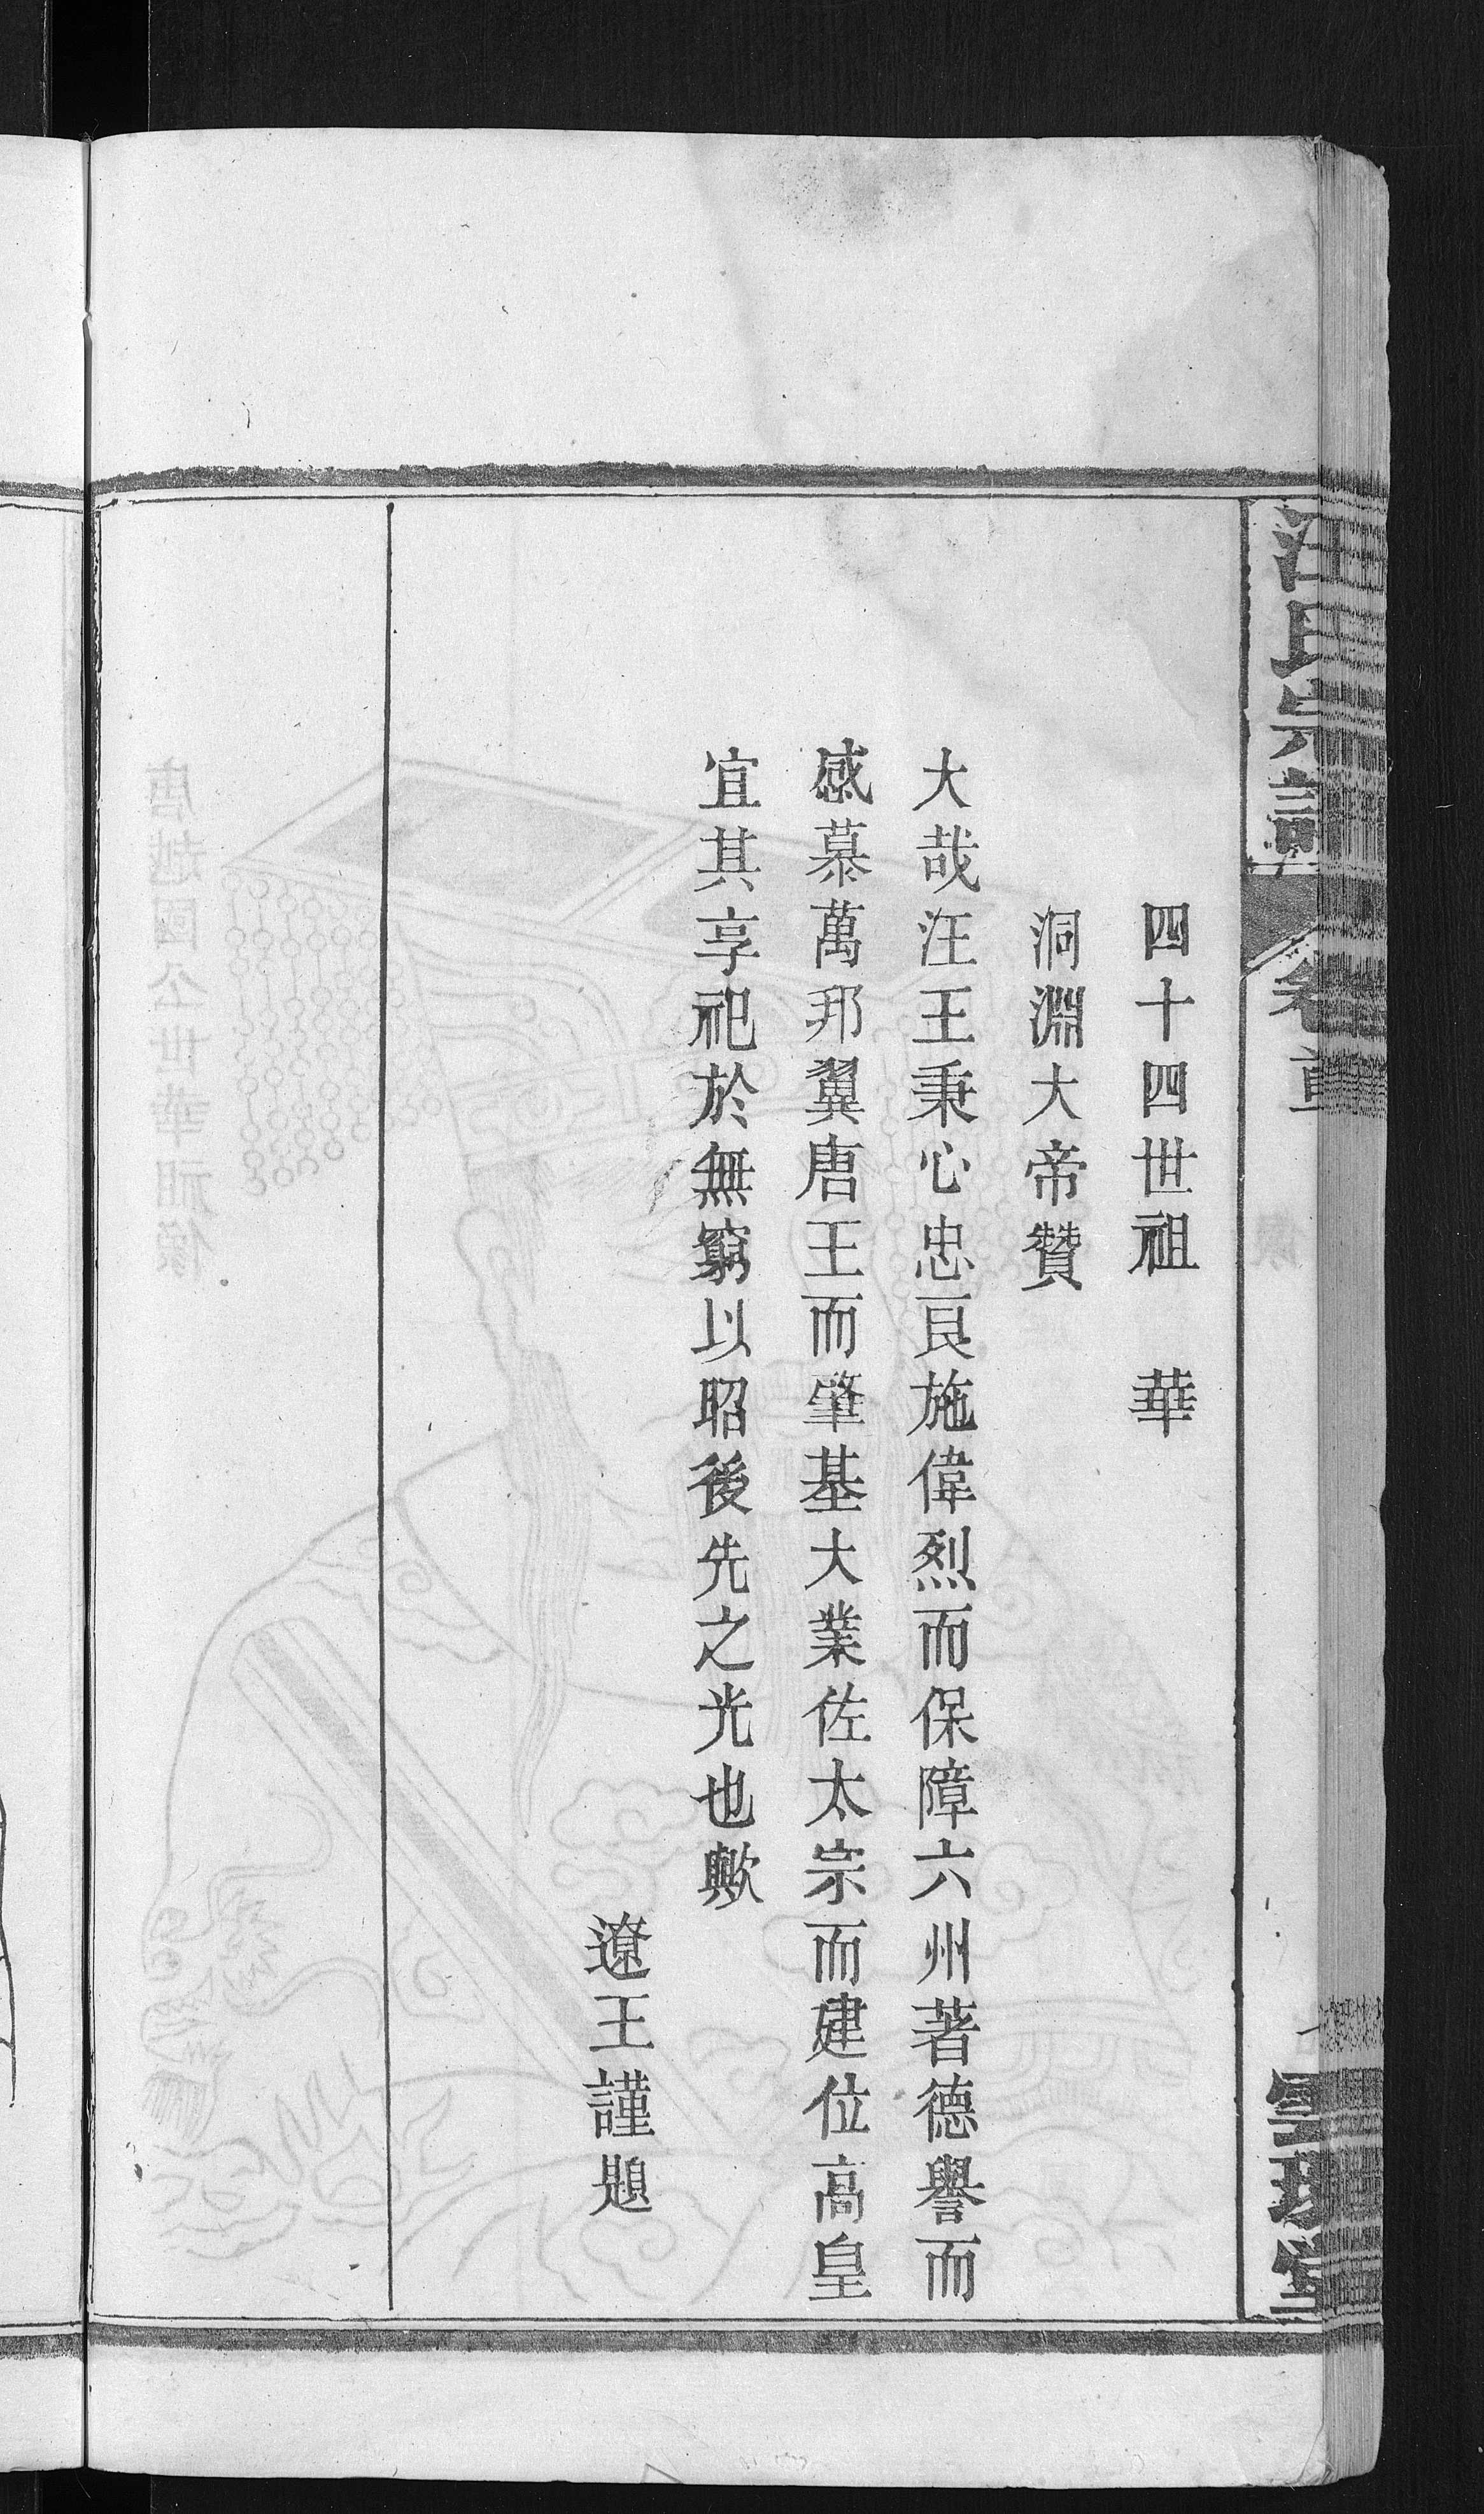 汪氏宗譜
卷首
四十四世祖　華
洞淵大帝贊
大哉汪王秉心忠良施偉烈而保障六州著德譽而
感慕萬邦翼唐王而肇基大業佐太宗而建位高皇
宜其享祀於無窮以昭後先之光也歟
遼王謹題
唐越國公世華祖像